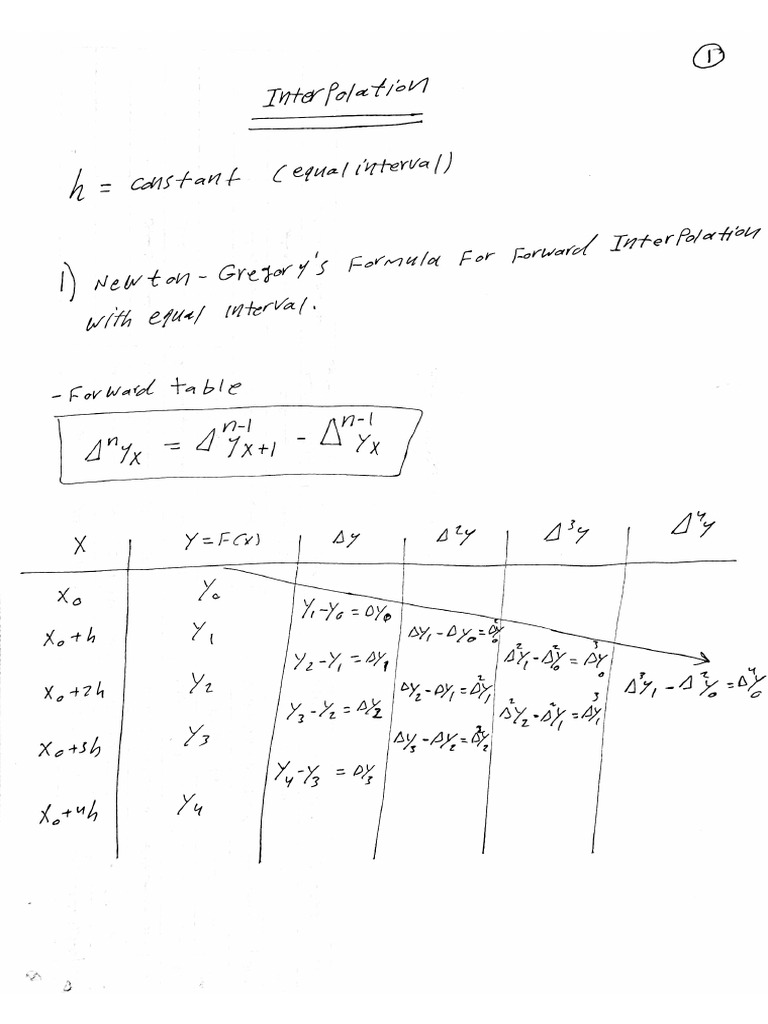 ①
Interpolation
h = constant (equal interval)
1) Newton - Gregory's Formula For Forward Interpolation
with equal interval.
- Forward table
Δⁿyₓ = Δⁿ⁻¹yₓ₊₁ - Δⁿ⁻¹yₓ
X | Y = F(x) | Δy | Δ²y | Δ³y | Δ⁴y
X₀ Y₀
Y₁-Y₀ = ΔY₀
X₀+h Y₁ ΔY₁ - ΔY₀ = Δ²Y₀
Y₂-Y₁ = ΔY₁ Δ²Y₁ - Δ²Y₀ = Δ³Y₀
X₀+2h Y₂ ΔY₂ - ΔY₁ = Δ²Y₁ Δ³Y₁ - Δ²Y₀ = Δ⁴Y₀
Y₃-Y₂ = ΔY₂ Δ²Y₂ - Δ²Y₁ = Δ³Y₁
X₀+3h Y₃ ΔY₃ - ΔY₂ = Δ²Y₂
Y₄-Y₃ = ΔY₃
X₀+4h Y₄